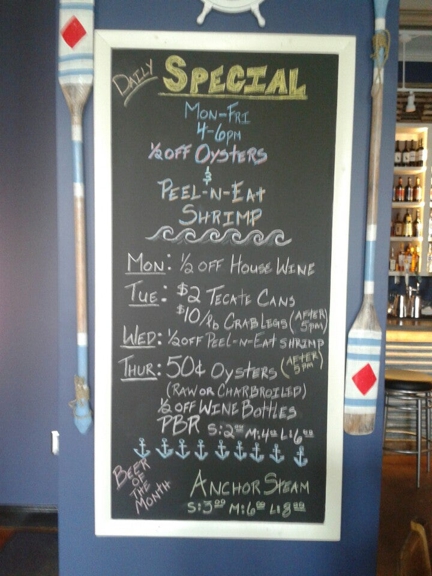 DAILY SPECIAL
MON-FRI
4-6PM
½ OFF OYSTERS
&
PEEL-N-EAT
SHRIMP
MON: ½ OFF HOUSE WINE
TUE: $2 TECATE CANS
$10/lb CRAB LEGS (AFTER 5PM)
WED: ½ OFF PEEL-N-EAT SHRIMP
THUR: 50¢ OYSTERS (AFTER 5PM)
(RAW OR CHARBROILED)
½ OFF WINE BOTTLES
PBR S:2⁰⁰ M:4⁰⁰ L:6⁰⁰
BEER OF THE MONTH
ANCHOR STEAM
S:3⁰⁰ M:6⁰⁰ L:8⁰⁰